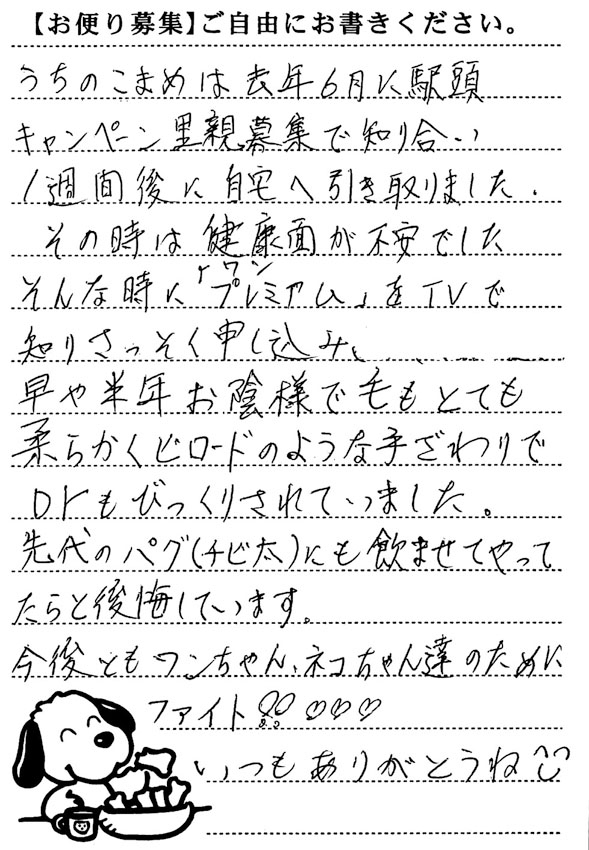 【お便り募集】ご自由にお書きください。
うちのこまめは去年6月に駅頭
キャンペーン里親募集で知り合い
1週間後に自宅へ引き取りました.
その時は健康面が不安でした
ワン
そんな時に「プレミアム」をTVで
知りさっそく申し込み、
早や半年お陰様で毛もとても
柔らかくビロードのような手ざわりで
Drもびっくりされていました。
先代のパグ(チビ太)にも飲ませてやって
たらと後悔しています。
今後ともワンちゃん、ネコちゃん達のために
ファイト!!♡♡♡
いつもありがとうね